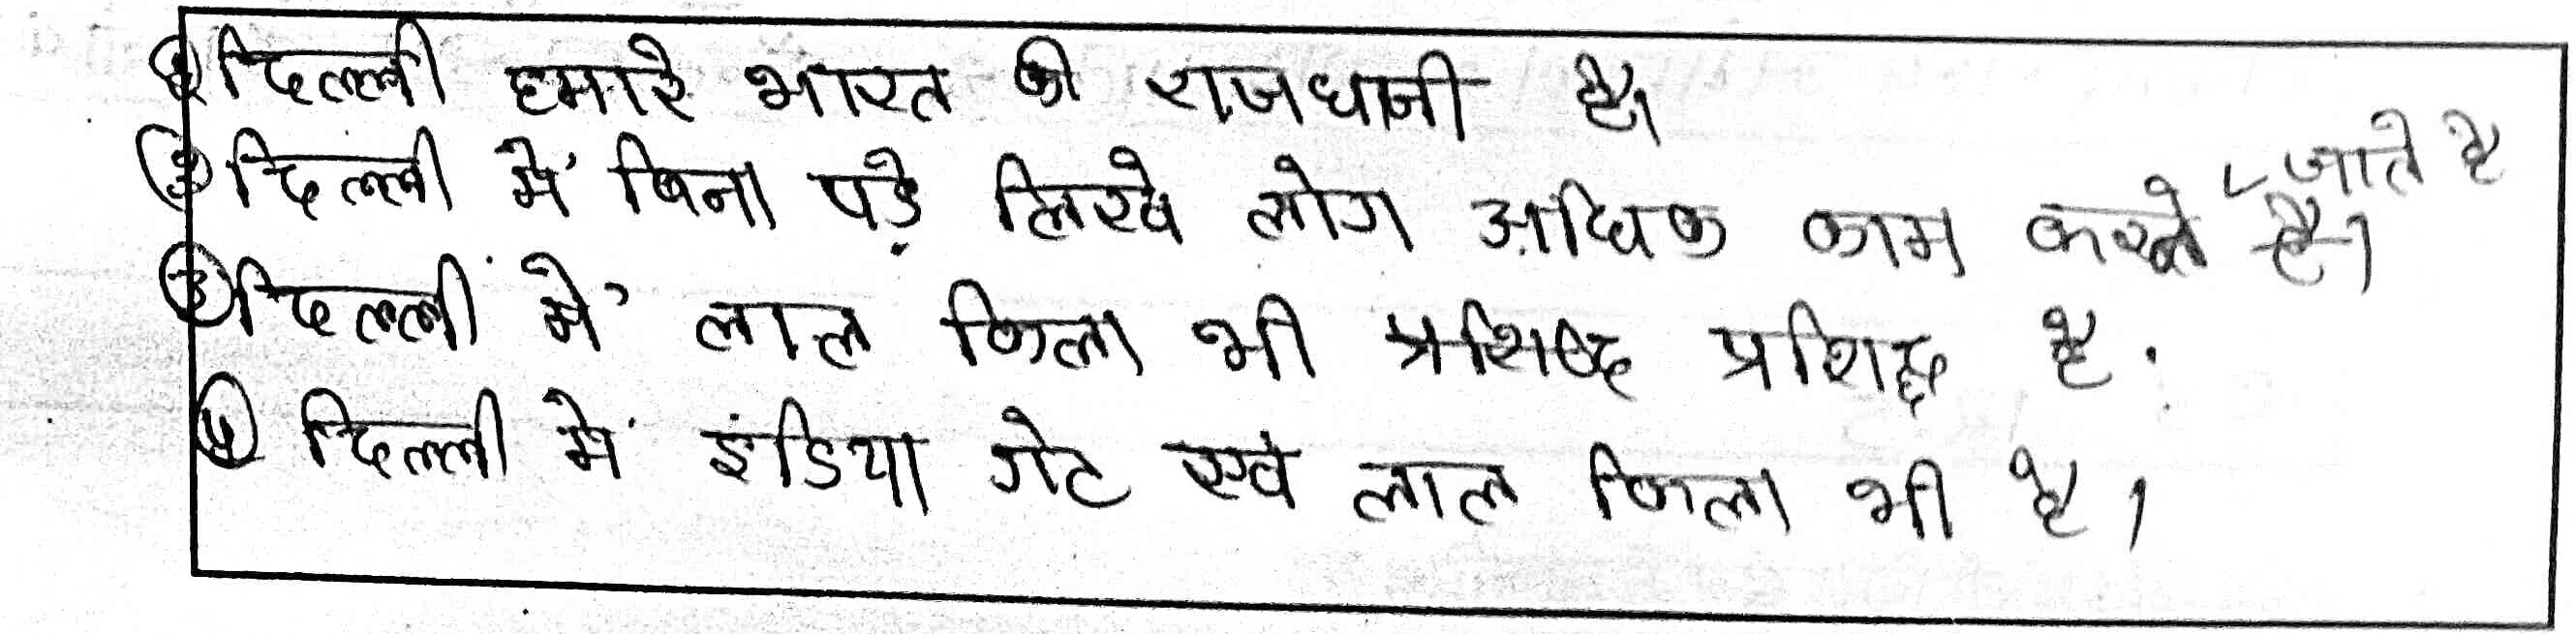 ① दिल्ली हमारे भारत की राजधानी है।
② दिल्ली में बिना पड़े लिखे लोग अधिक काम करने जाते है
③ दिल्ली में लाल किला भी प्रशिध्द प्रशिद्ध है.
④ दिल्ली में इंडिया गेट एवं लाल किला भी है।